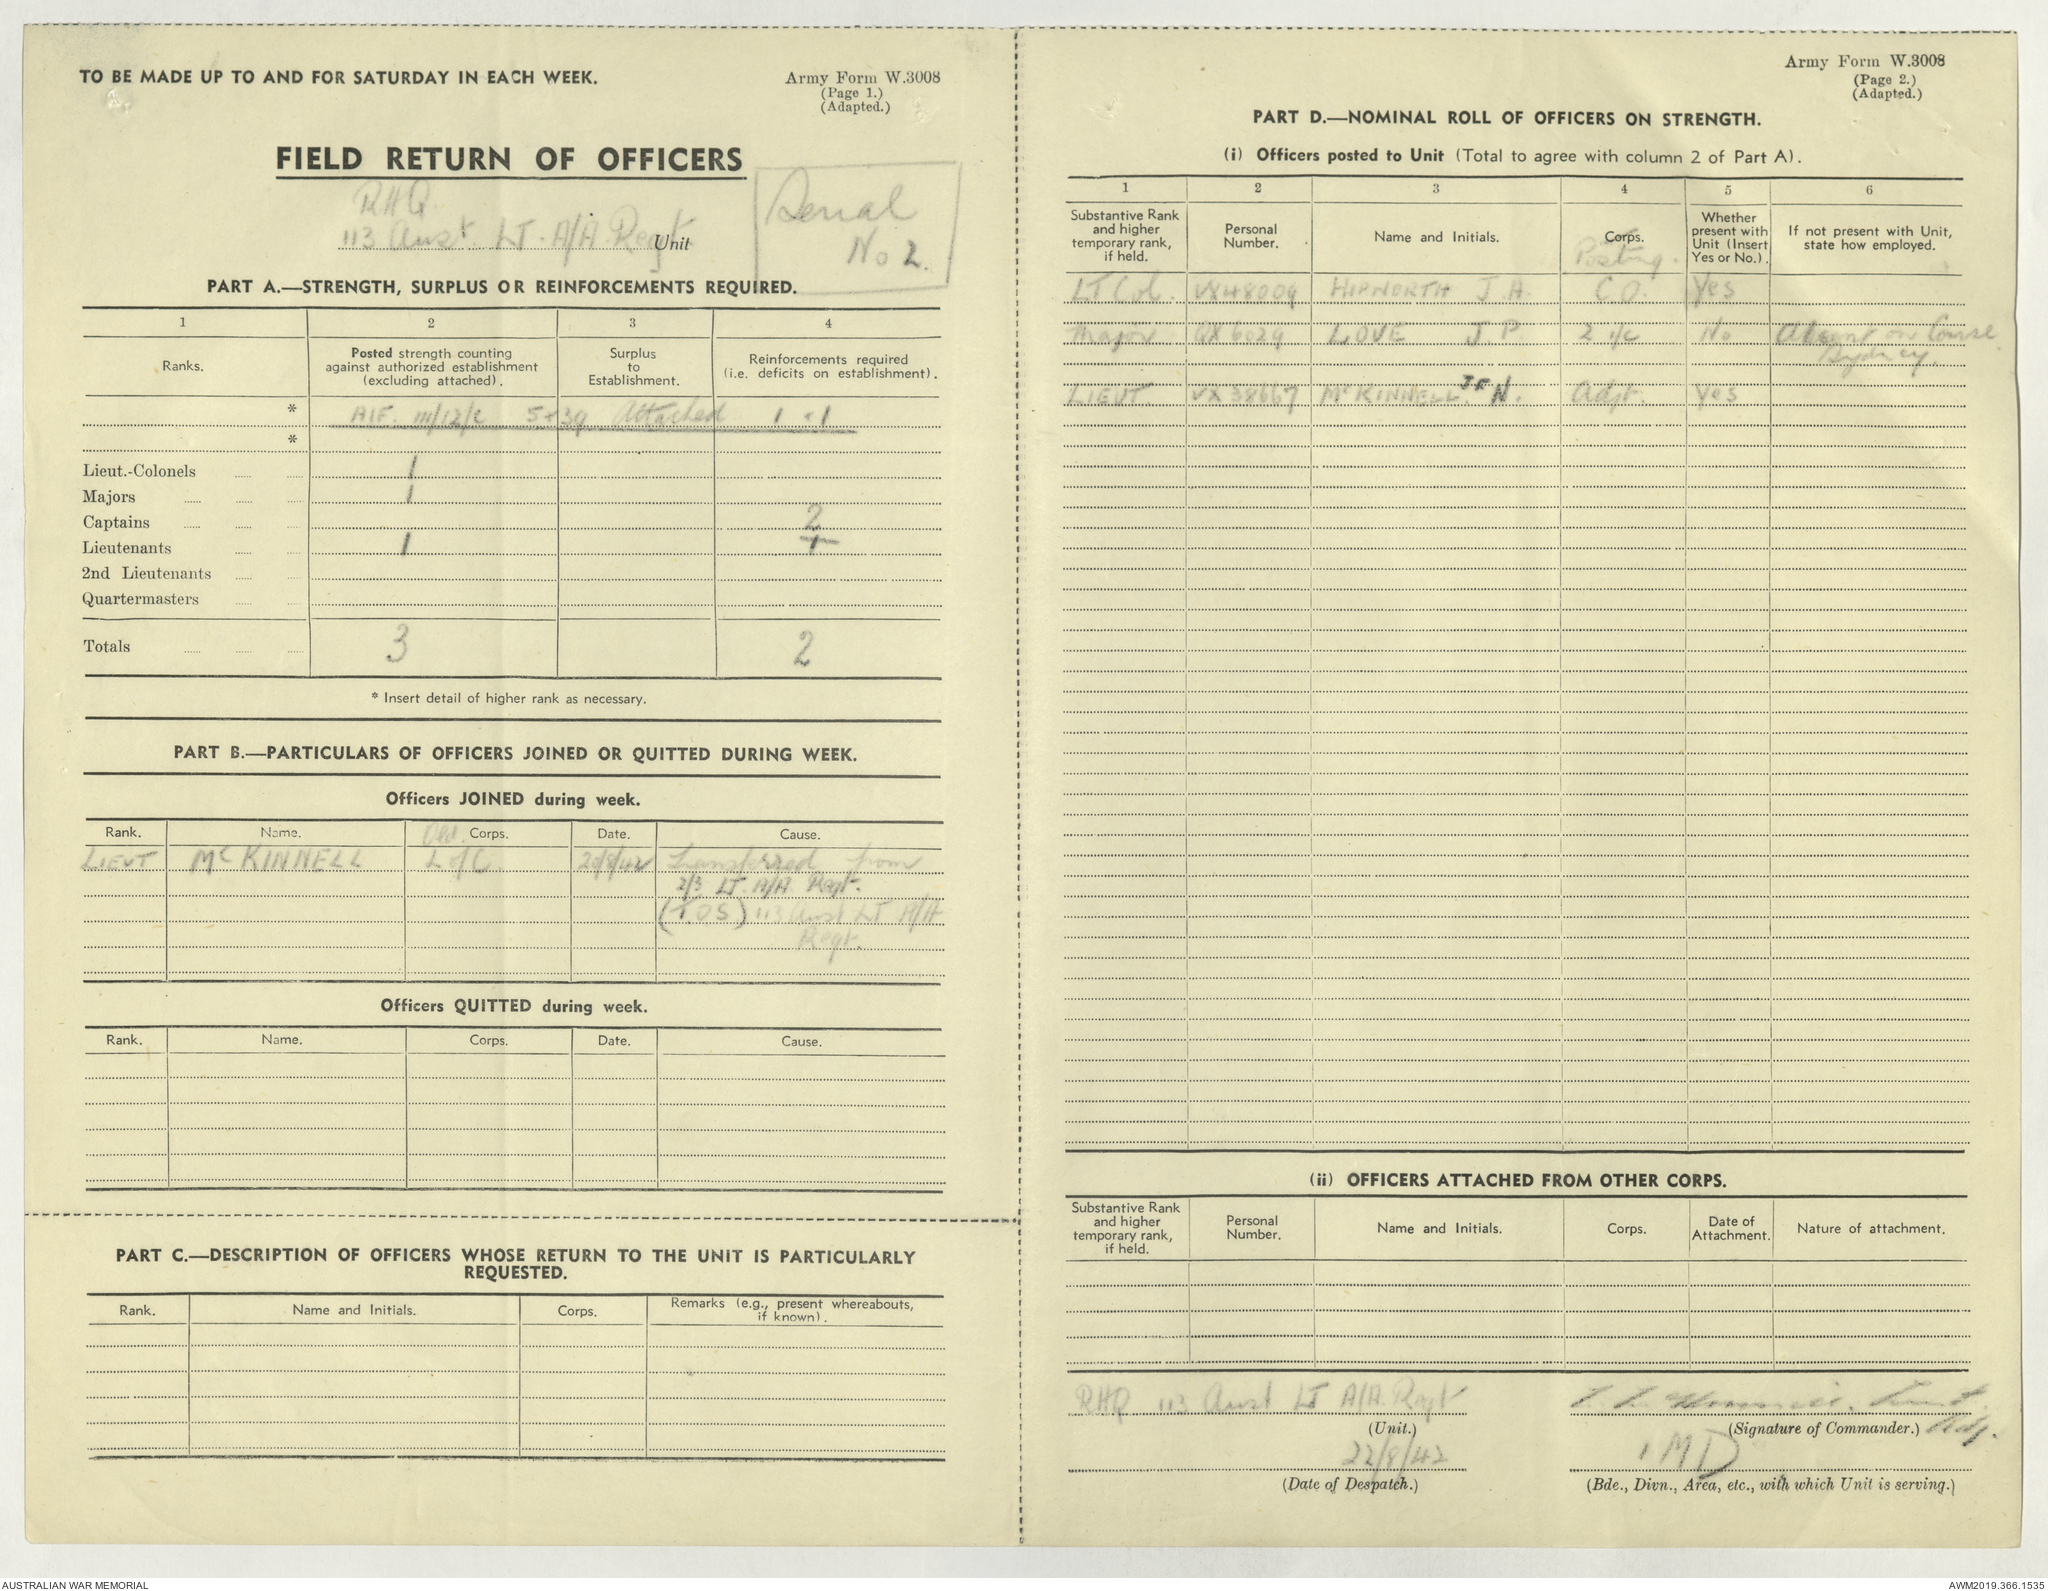 TO BE MADE UP TO AND FOR SATURDAY IN EACH WEEK.
Army Form W.3008
(Page 1.)
(Adapted.)
FIELD RETURN OF OFFICERS
RHQ.
113 Aust LT. A/A Regt Unit
Serial
No 2.
PART A.—STRENGTH, SURPLUS OR REINFORCEMENTS REQUIRED.
1 2 3 4
Ranks.
Posted strength counting
against authorized establishment
(excluding attached).
Surplus
to
Establishment.
Reinforcements required
(i.e. deficits on establishment).
* AIF. 5+39 Attached 1 + 1
*
Lieut.-Colonels 1
Majors 1
Captains 2
Lieutenants 1 1
2nd Lieutenants
Quartermasters
Totals 3 2
* Insert detail of higher rank as necessary.
PART B.—PARTICULARS OF OFFICERS JOINED OR QUITTED DURING WEEK.
Officers JOINED during week.
Rank. Name. Old. Corps. Date. Cause.
LIEUT McKINNELL L of C. 20/8/42 Transferred from
2/3 LT. A/A. Regt.
(TOS) 113 Aust LT A/A
Regt.
Officers QUITTED during week.
Rank. Name. Corps. Date. Cause.
PART C.—DESCRIPTION OF OFFICERS WHOSE RETURN TO THE UNIT IS PARTICULARLY
REQUESTED.
Rank. Name and Initials. Corps.
Remarks (e.g., present whereabouts,
if known).
Army Form W.3008
(Page 2.)
(Adapted.)
PART D.—NOMINAL ROLL OF OFFICERS ON STRENGTH.
(i) Officers posted to Unit (Total to agree with column 2 of Part A).
1 2 3 4 5 6
Substantive Rank
and higher
temporary rank,
if held.
Personal
Number.
Name and Initials.
Corps.
Posting.
Whether
present with
Unit (Insert
Yes or No.).
If not present with Unit,
state how employed.
LT Col. VX48009 HIPWORTH J.A. C O. Yes
Major QX6029 LOVE J.P. 2 i/c No Absent on Course
Sydney.
LIEUT. VX38667 McKINNELL. J F N. Adjt. Yes
(ii) OFFICERS ATTACHED FROM OTHER CORPS.
Substantive Rank
and higher
temporary rank,
if held.
Personal
Number.
Name and Initials.
Corps.
Date of
Attachment.
Nature of attachment.
RHQ 113 Aust LT A/A. Regt
(Unit.)
Lieut.
(Signature of Commander.) Adj.
22/8/42
(Date of Despatch.)
1 MD
(Bde., Divn., Area, etc., with which Unit is serving.)
AUSTRALIAN WAR MEMORIAL
AWM2019.366.1535